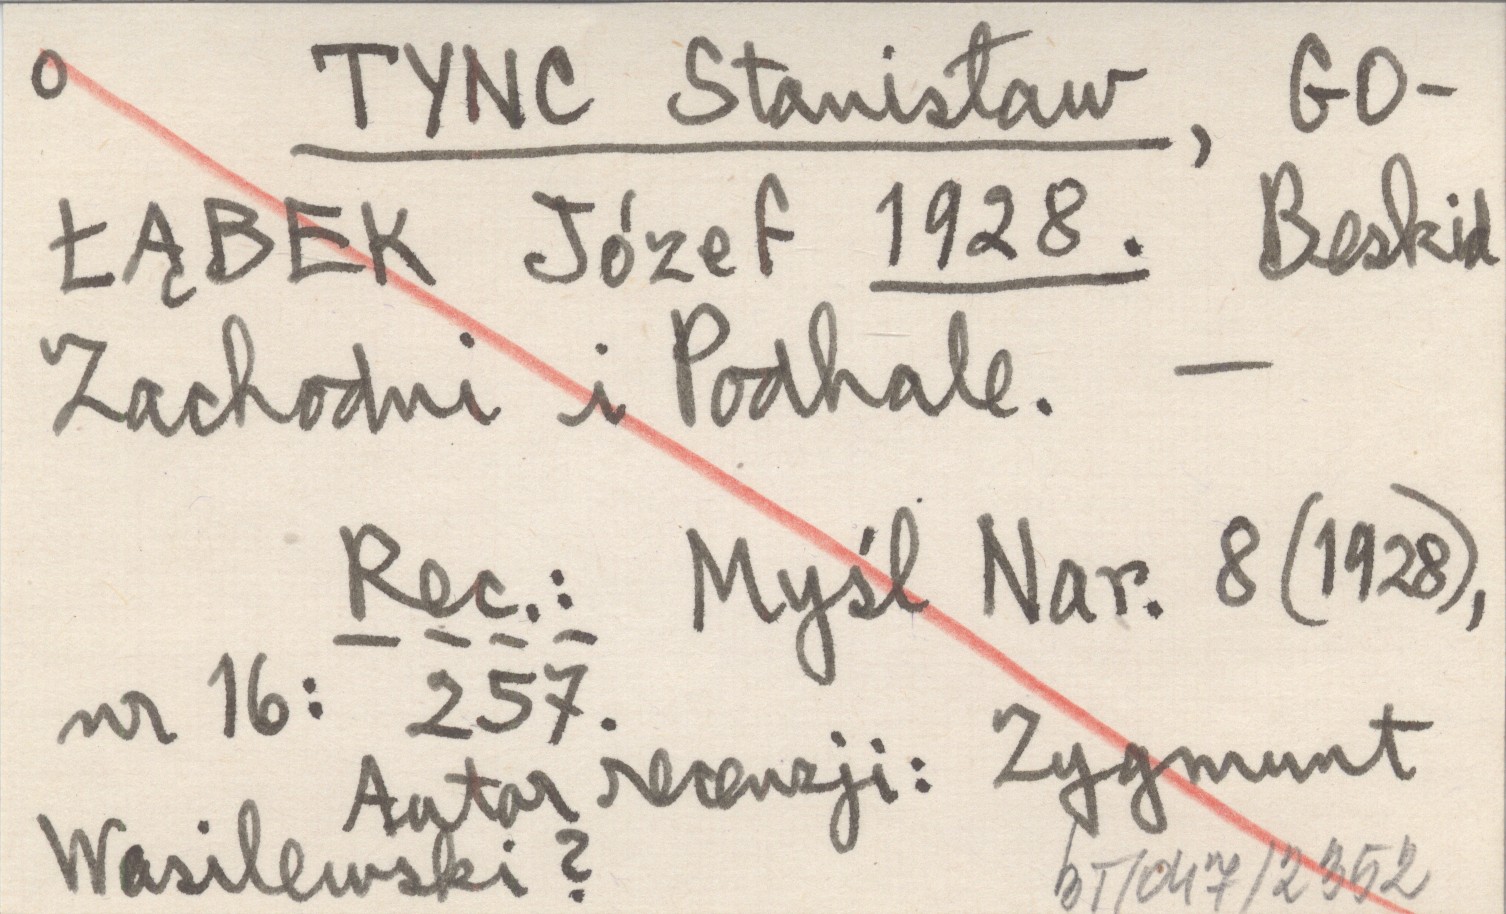 o TYNC Stanisław, GO-
ŁĄBEK Józef 1928. Beskid
Zachodni i Podhale. —
Rec.: Myśl Nar. 8 (1928),
nr 16: 257.
Autor recenzji: Zygmunt
Wasilewski?
/2352